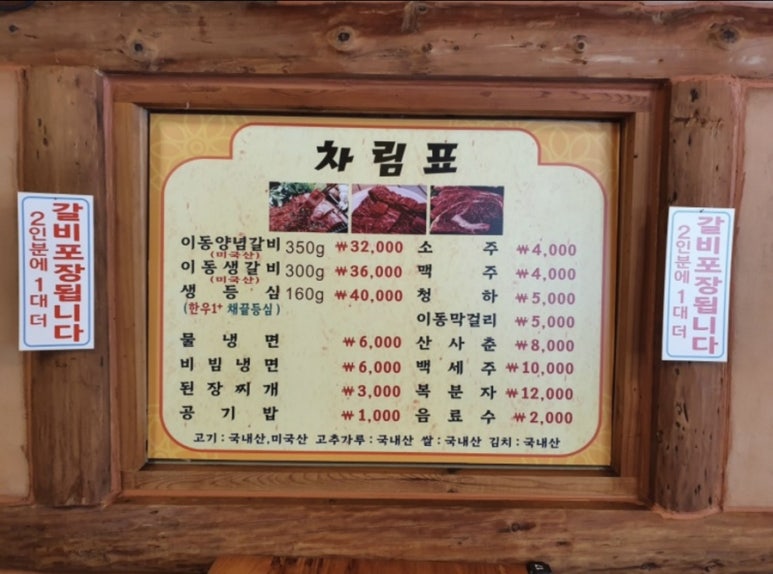 차림표
이동양념갈비 350g ₩32,000
(미국산)
이동생갈비 300g ₩36,000
(미국산)
생등심 160g ₩40,000
(한우1⁺ 채끝등심)
물냉면 ₩6,000
비빔냉면 ₩6,000
된장찌개 ₩3,000
공기밥 ₩1,000
소주 ₩4,000
맥주 ₩4,000
청하 ₩5,000
이동막걸리 ₩5,000
산사춘 ₩8,000
백세주 ₩10,000
복분자 ₩12,000
음료수 ₩2,000
고기 : 국내산,미국산 고추가루 : 국내산 쌀 : 국내산 김치 : 국내산
갈비포장됩니다
2인분에 1대 더
갈비포장됩니다
2인분에 1대 더